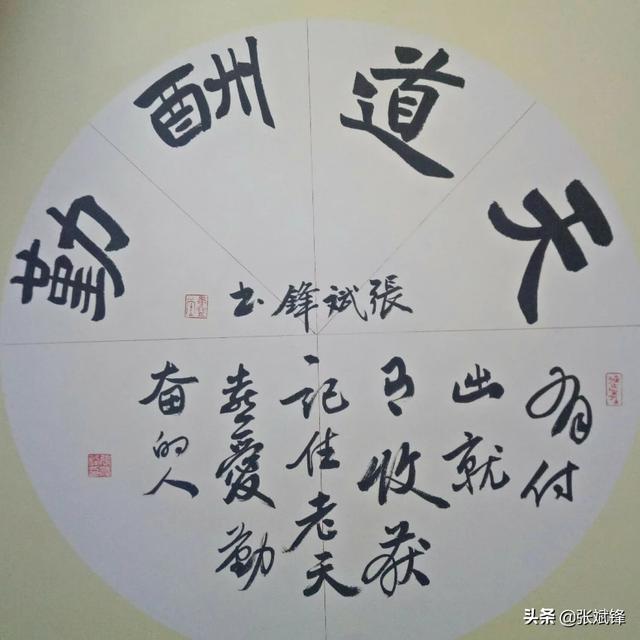 天道酬勤
張斌鋒书
有付
出就
有收获
记住老天
喜愛勤
奋的人
头条 @张斌锋